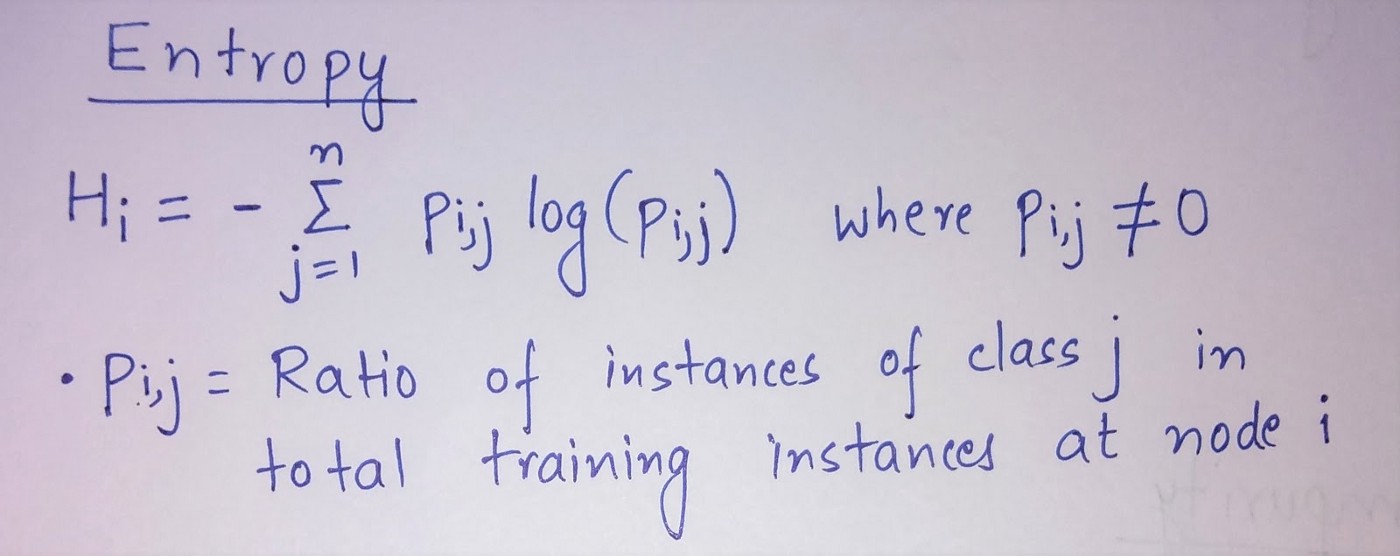 Entropy
Hi = - n Σ j=1 Pi,j log(Pi,j) where Pi,j ≠ 0
• Pi,j = Ratio of instances of class j in
total training instances at node i